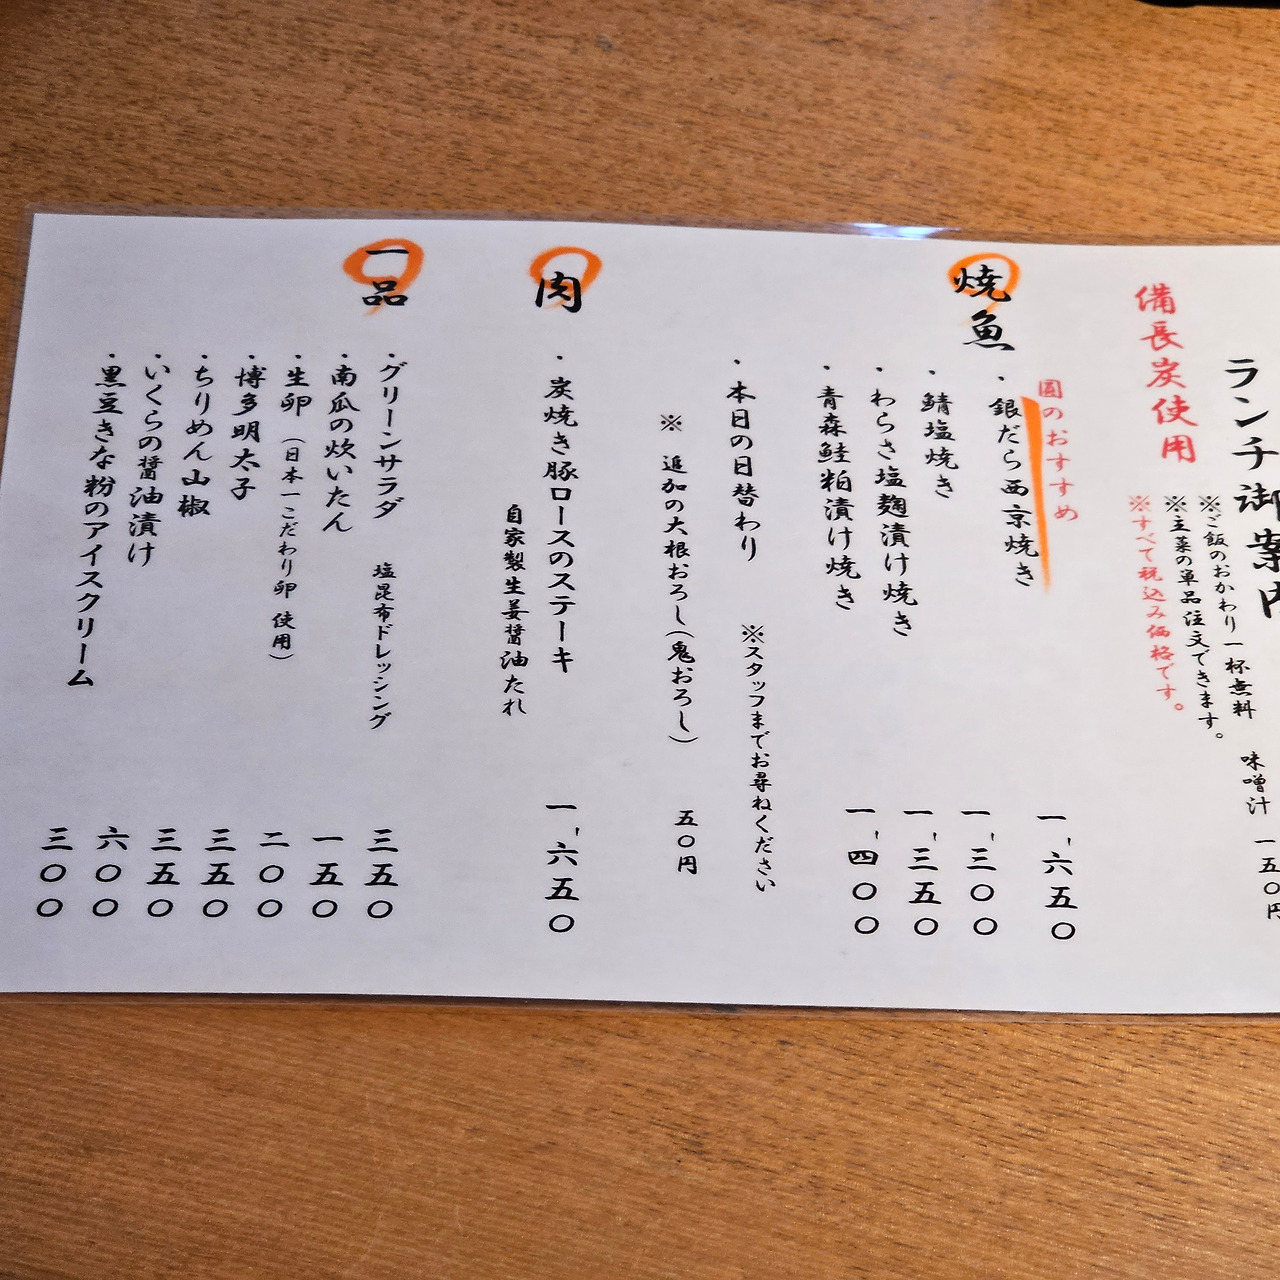 ランチ御案内
※ご飯のおかわり一杯無料 味噌汁 一五〇円
※主菜の単品注文できます。
※すべて税込み価格です。
備長炭使用
焼魚
圓のおすすめ
・銀だら西京焼き 一、六五〇
・鯖塩焼き 一、三〇〇
・わらさ塩麹漬け焼き 一、三五〇
・青森鮭粕漬け焼き 一、四〇〇
・本日の日替わり ※スタッフまでお尋ねください
※ 追加の大根おろし(鬼おろし) 五〇円
肉
・炭焼き豚ロースのステーキ 一、六五〇
自家製生姜醤油たれ
一品
・グリーンサラダ 塩昆布ドレッシング 三五〇
・南瓜の炊いたん 一五〇
・生卵 (日本一こだわり卵 使用) 二〇〇
・博多明太子 三五〇
・ちりめん山椒 三五〇
・いくらの醤油漬け 六〇〇
・黒豆きな粉のアイスクリーム 三〇〇